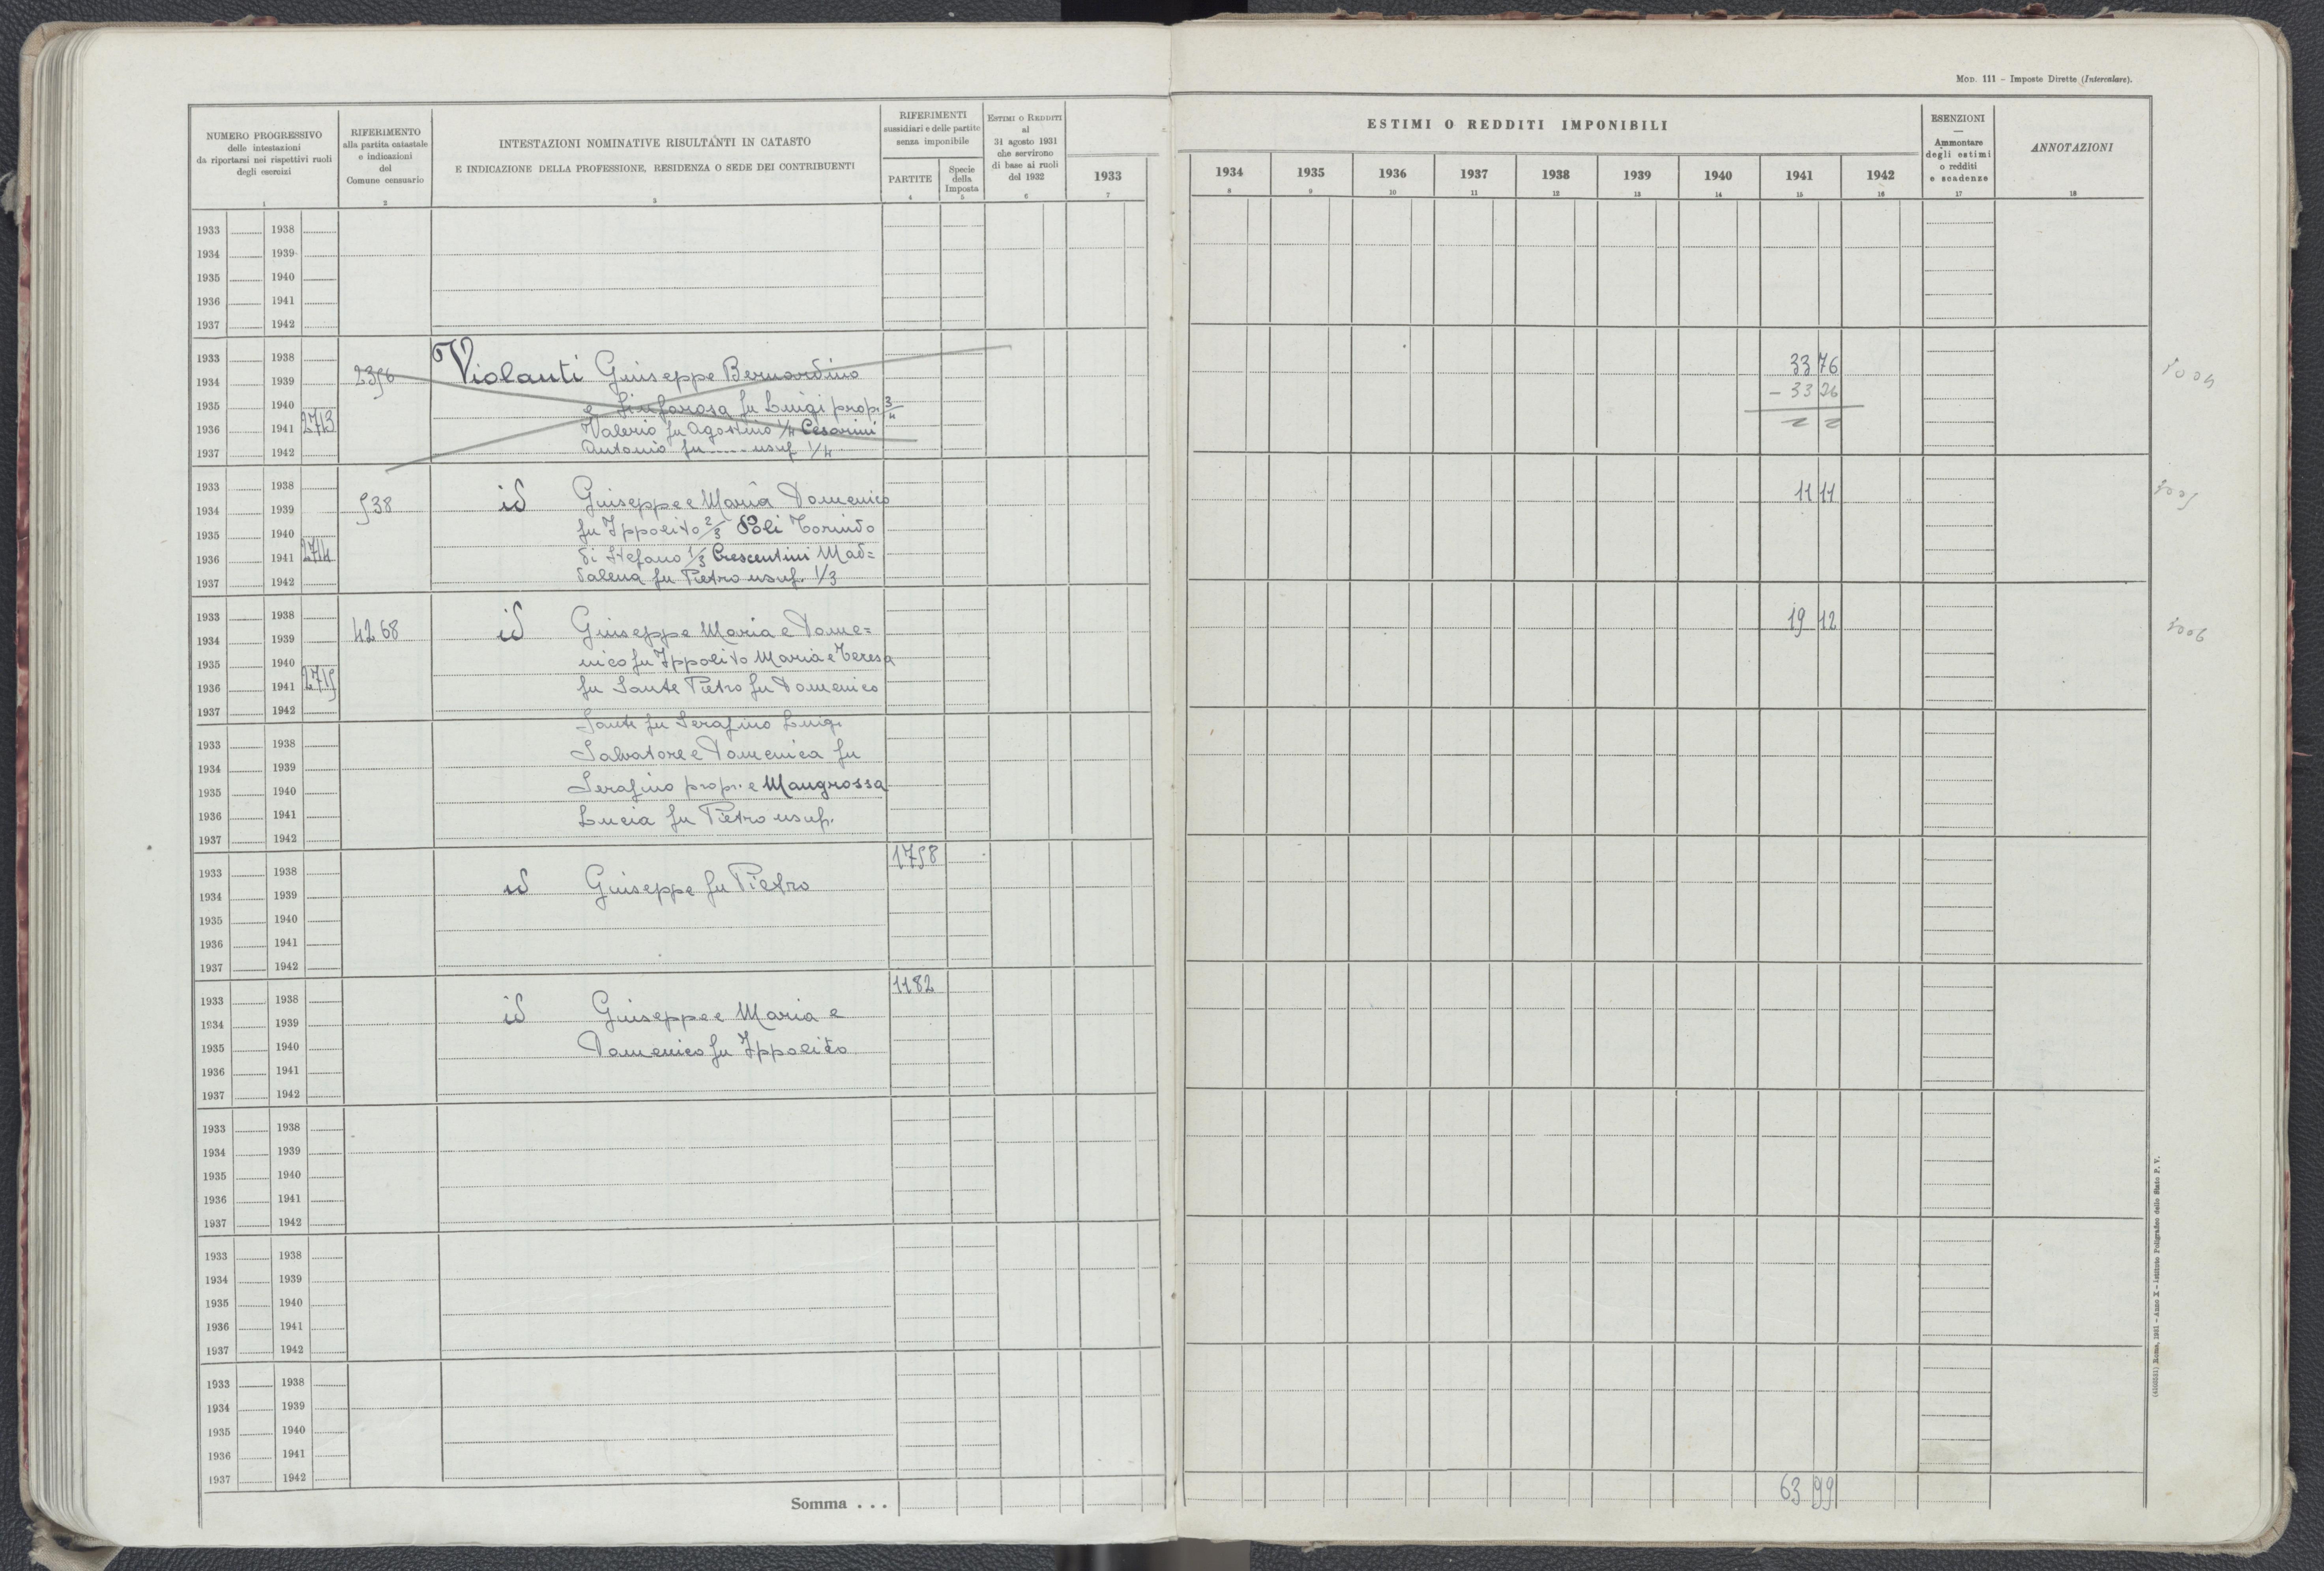 MOD. 111 – Imposte Dirette (Intercalare).
NUMERO PROGRESSIVO
delle intestazioni
da riportarsi nei rispettivi ruoli
degli esercizi
1
RIFERIMENTO
alla partita catastale
e indicazioni
del
Comune censuario
2
INTESTAZIONI NOMINATIVE RISULTANTI IN CATASTO
E INDICAZIONE DELLA PROFESSIONE, RESIDENZA O SEDE DEI CONTRIBUENTI
3
RIFERIMENTI
sussidiari e delle partite
senza imponibile
PARTITE
4
Specie
della
Imposta
5
ESTIMI O REDDITI
al
31 agosto 1931
che servirono
di base ai ruoli
del 1932
6
1933
7
ESTIMI O REDDITI IMPONIBILI
1934 1935 1936 1937 1938 1939 1940 1941 1942
8 9 10 11 12 13 14 15 16
ESENZIONI
—
Ammontare
degli estimi
o redditi
e scadenze
17
ANNOTAZIONI
18
1933 1938
1934 1939
1935 1940
1936 1941
1937 1942
1933 1938
Violanti Giuseppe Bernardino 33 76
1934 1939
e Sinforosa fu Luigi prop. 3/4 – 33 26
1935 1940
Valerio fu Agostino 1/4 Cesarini
1936 1941 2713
Antonio fu ..... usuf 1/4
1937 1942
1933 1938
538 id Giuseppe e Maria Domenico 11 11
1934 1939
fu Ippolito 2/3 Poli Torindo
1935 1940
di Stefano 1/3 Crescentini Mad=
1936 1941 2714
dalena fu Pietro usuf. 1/3
1937 1942
1933 1938
4268 id Giuseppe Maria e Dome= 19 12 3006
1934 1939
nico fu Ippolito Maria e Teresa
1935 1940
fu Sante Pietro fu Domenico
1936 1941 2715
1937 1942
Sante fu Serafino Luigi
1933 1938
Salvatore e Domenica fu
1934 1939
Serafino propr. e Mangrossa
1935 1940
Lucia fu Pietro usuf.
1936 1941
1937 1942
1758
1933 1938
id Giuseppe fu Pietro
1934 1939
1935 1940
1936 1941
1937 1942
1182
1933 1938
id Giuseppe e Maria e
1934 1939
Domenico fu Ippolito
1935 1940
1936 1941
1937 1942
1933 1938
1934 1939
1935 1940
1936 1941
1937 1942
1933 1938
1934 1939
1935 1940
1936 1941
1937 1942
1933 1938
1934 1939
1935 1940
1936 1941
1937 1942
Somma . . . 63 99